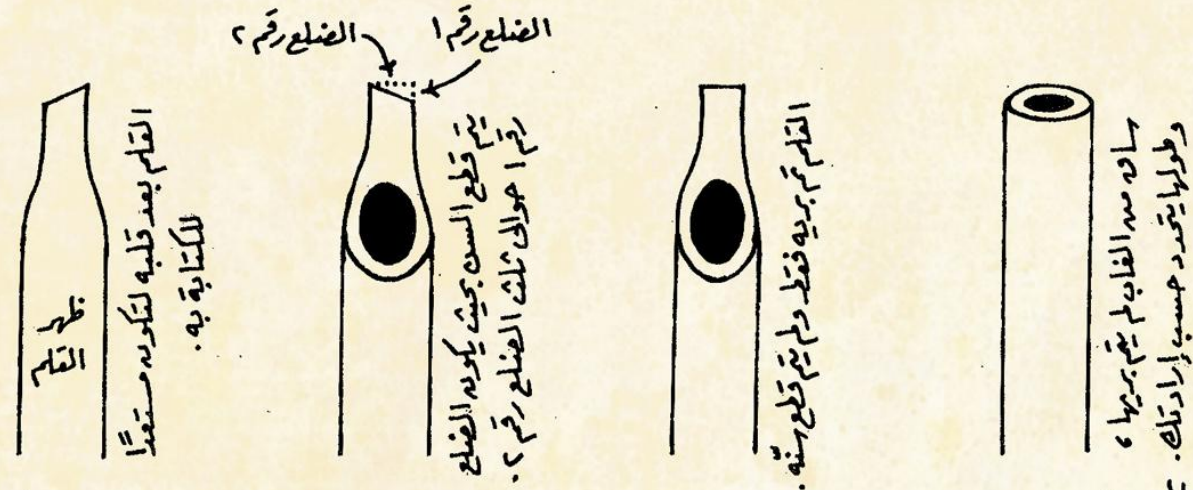 ساق من الغاب لم يتم بريها ،
وطولها يتحدد حسب إرادتك .
القلم تم بريه فقط ولم يتم قطع سنّه .
الضلع رقم ١
الضلع رقم ٢
يتم قطع السن بحيث يكون الضلع
رقم ١ حوالى ثلث الضلع رقم ٢ .
القلم بعد قلبه لتكون مستعدًا
للكتابة به .
القلم